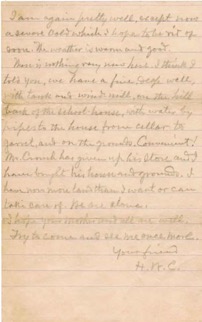 I am again pretty well, except now
a severe cold which I hope to be rid of
soon. The weather is warm and good.
There is nothing very new here. I think I
told you, we have a fine, deep well,
with tank and wind mill, on the hill
back of the school house, with water by
pipes to the house from cellar to
garret, and on the grounds. Convenient!
Mr. Crouch has given up his store and I
have bought his house and grounds. I
have now more land than I want or can
take care of. We are alone.
I hope your mother and all are well.
Try to come and see me once more.
Your friend